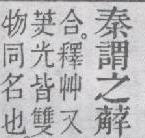 秦謂之薢
合。釋艸又
芵光皆雙
物同名也